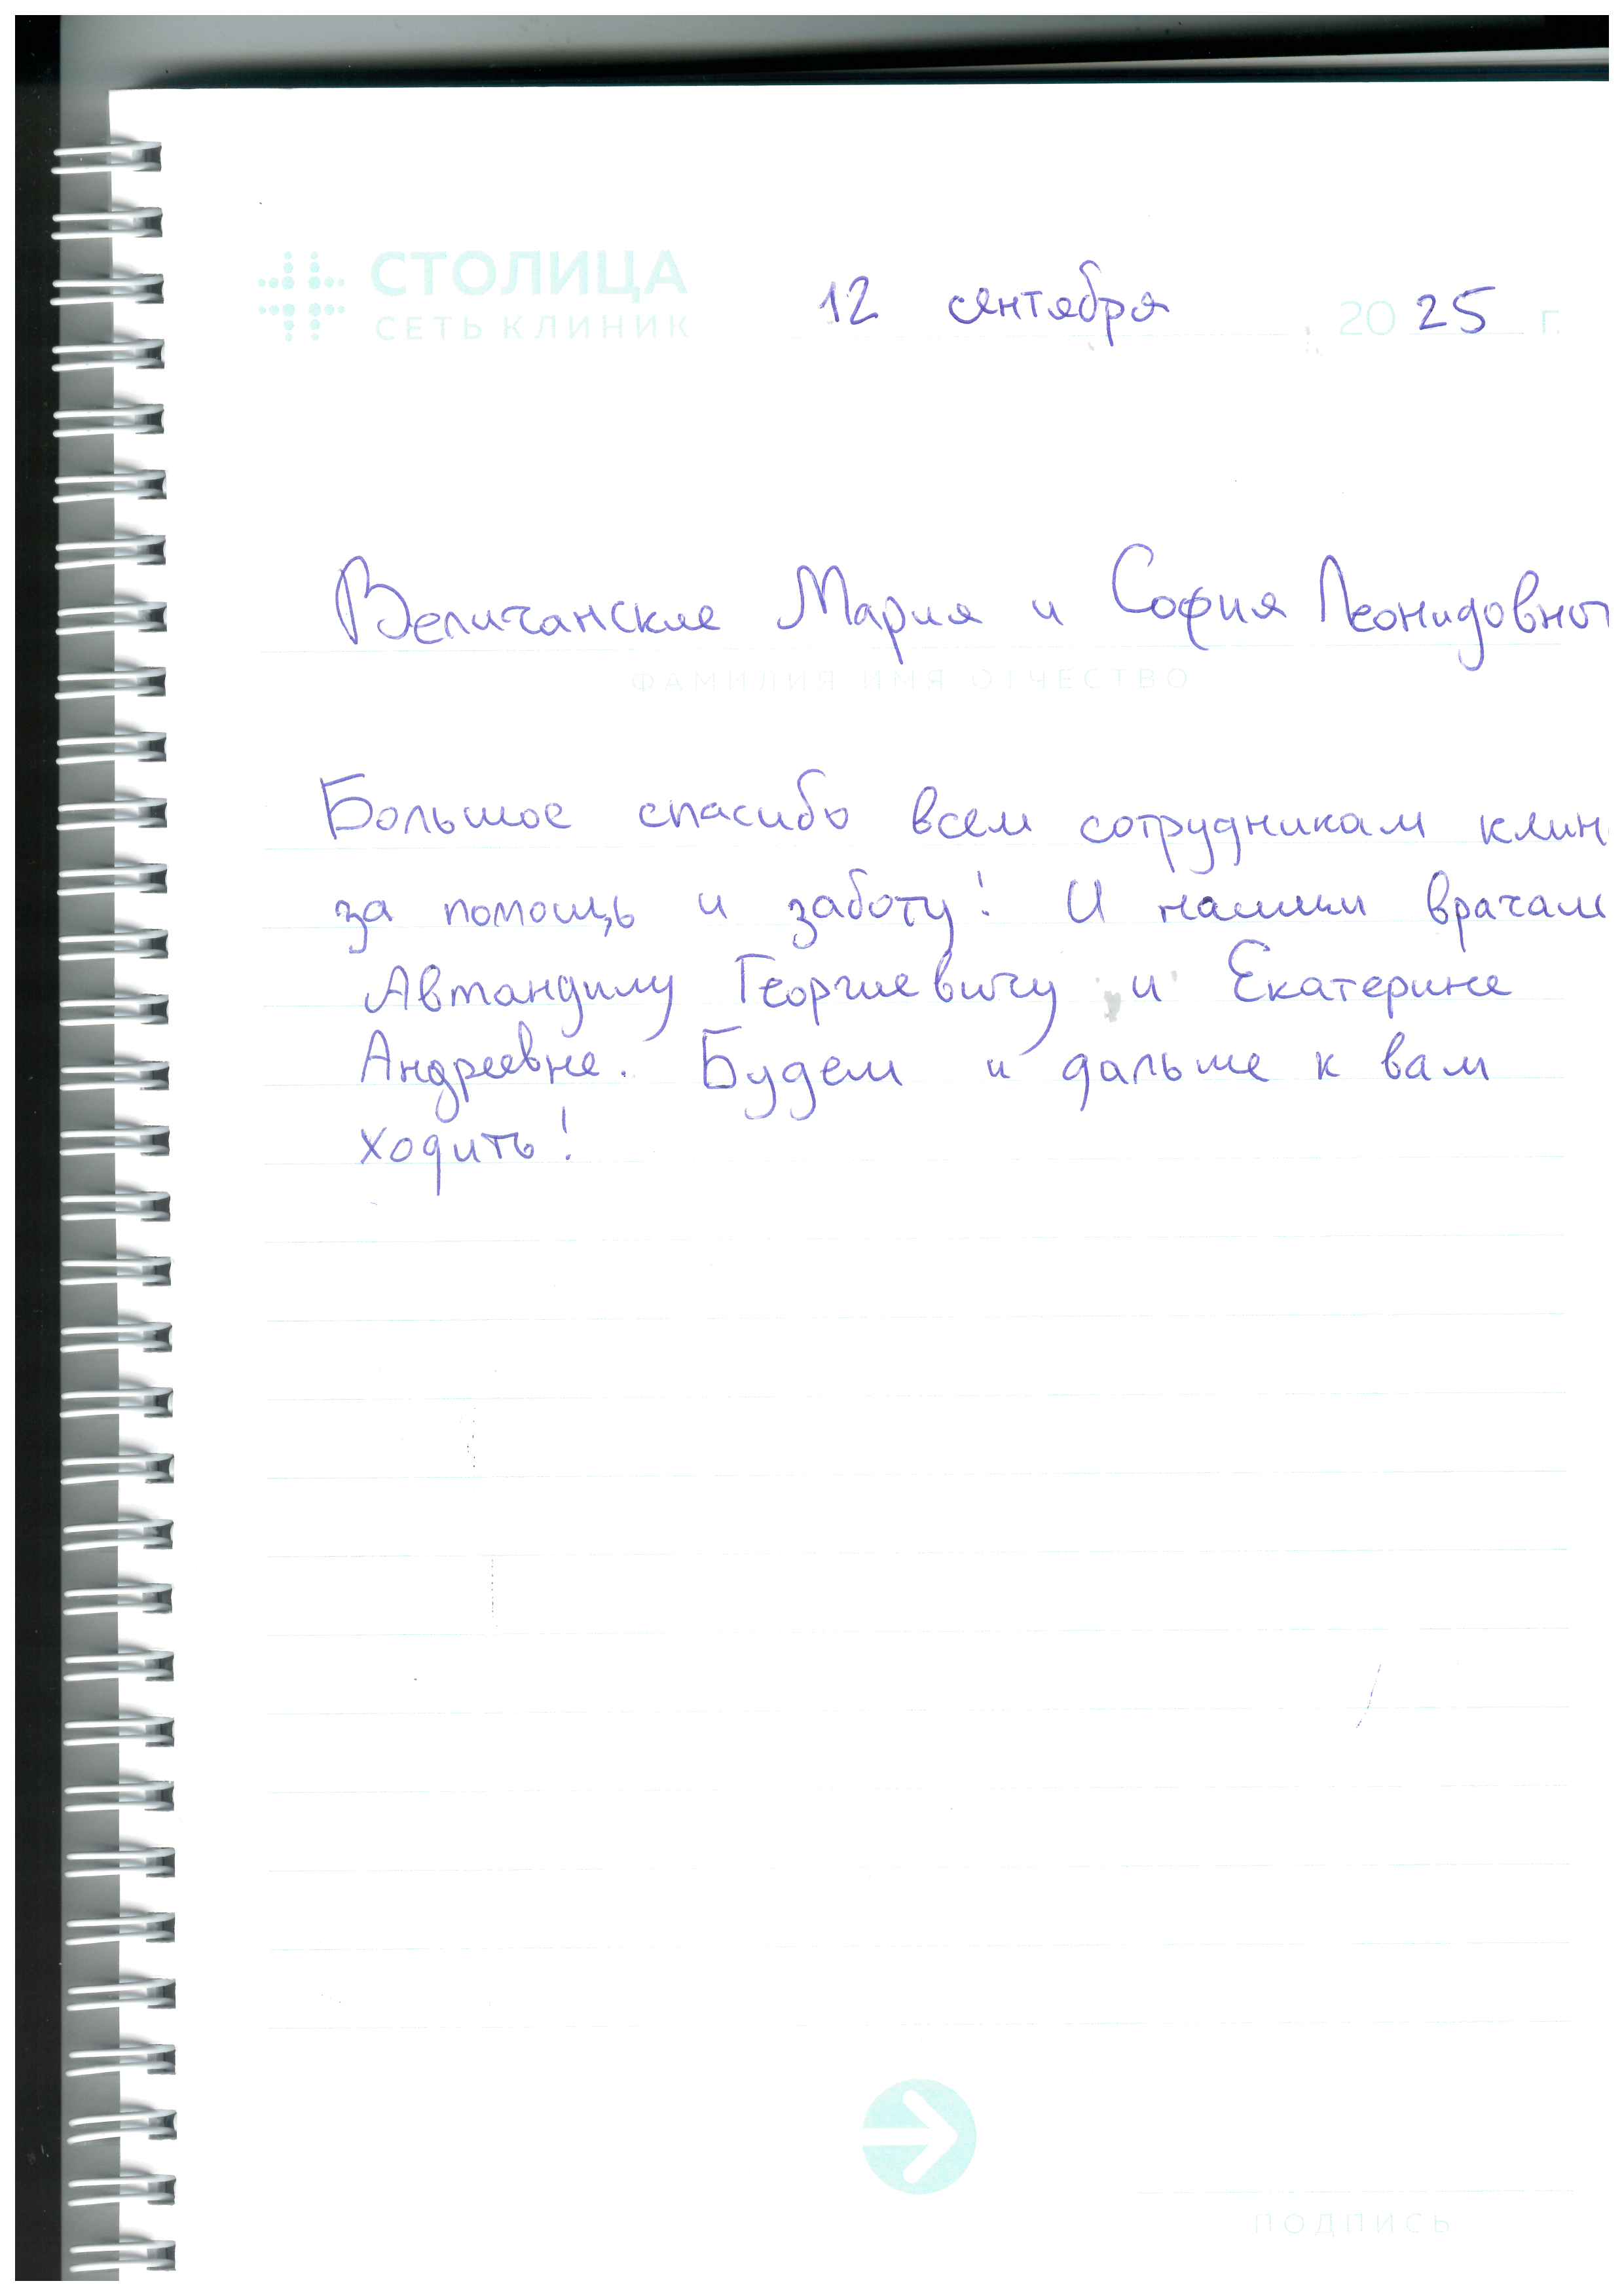 СТОЛИЦА
СЕТЬ КЛИНИК
12 сентября 2025 г.
Величанские Мария и София Леонидовны
ФАМИЛИЯ ИМЯ ОТЧЕСТВО
Большое спасибо всем сотрудникам клин
за помощь и заботу! И нашим врачам
Автандилу Георгиевичу и Екатерине
Андреевне. Будем и дальше к вам
ходить!
ПОДПИСЬ